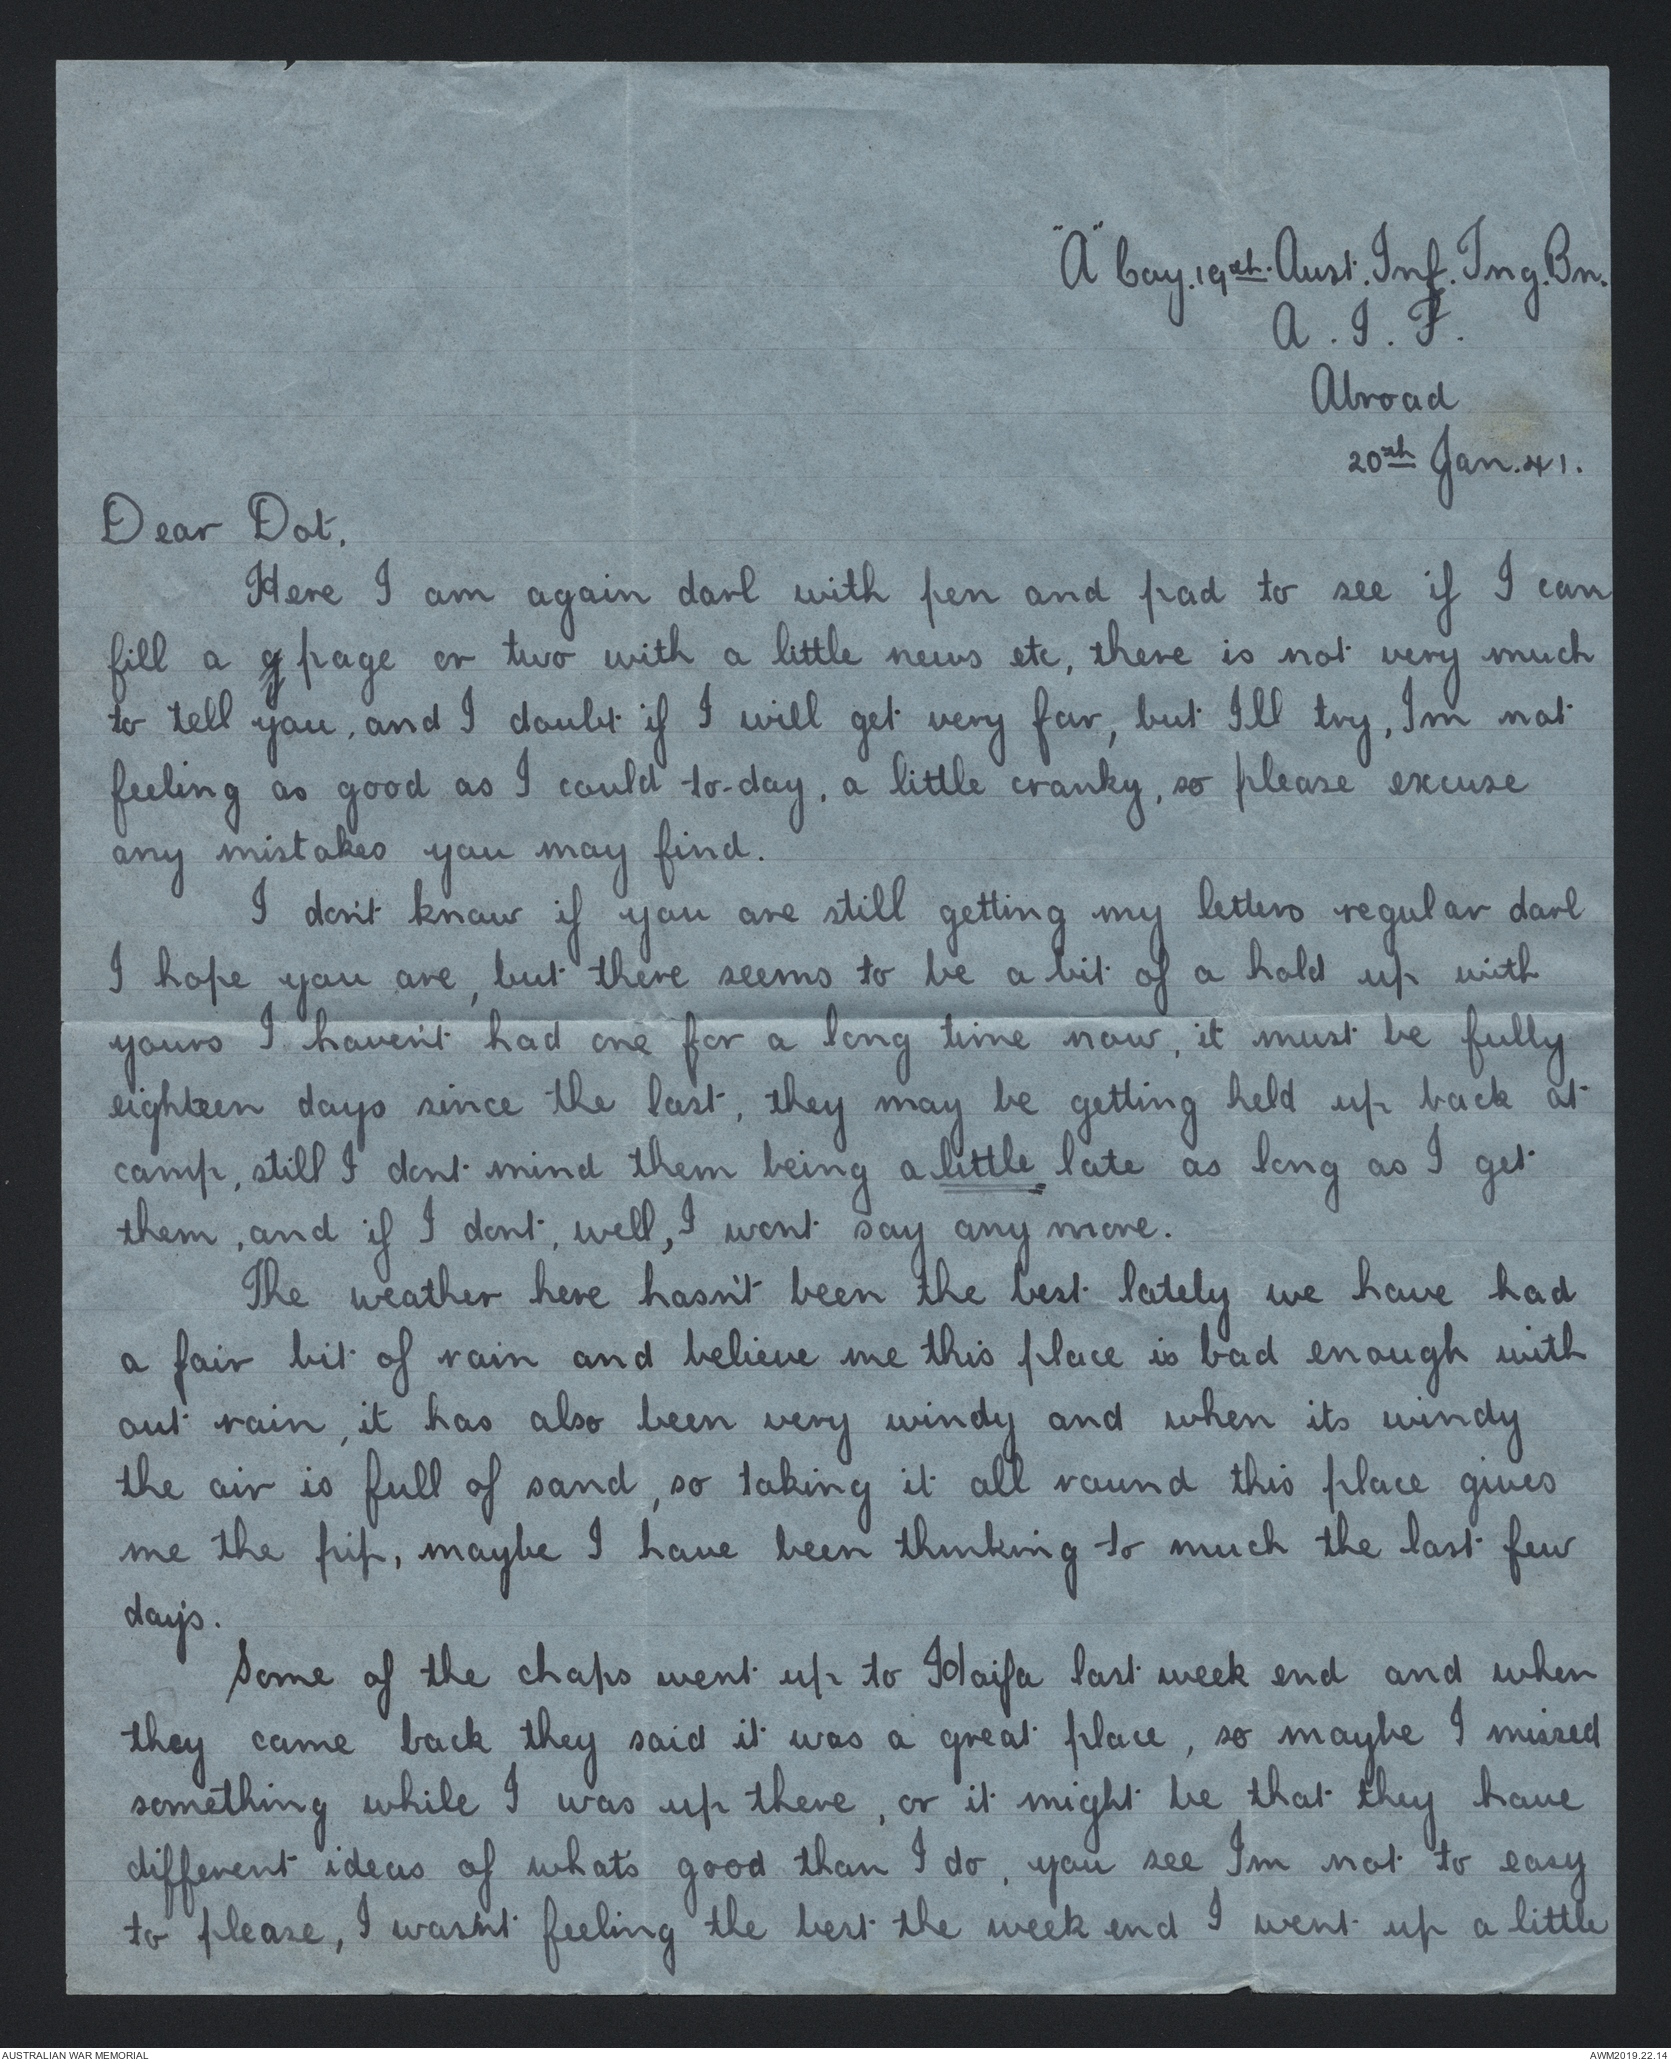 "A" Coy. 19th. Aust. Inf. Tng. Bn.
A. I. F.
Abroad
20th Jan. 41.
Dear Dot,
Here I am again darl with pen and pad to see if I can
fill a page or two with a little news etc, there is not very much
to tell you, and I doubt if I will get very far, but I'll try, Im not
feeling as good as I could to-day, a little cranky, so please excuse
any mistakes you may find.
I don't know if you are still getting my letters regular darl
I hope you are, but there seems to be a bit of a hold up with
yours I haven't had one for a long time now, it must be fully
eighteen days since the last, they may be getting held up back at
camp, still I dont mind them being a little late as long as I get
them, and if I dont, well, I wont say any more.
The weather here hasn't been the best lately we have had
a fair bit of rain and believe me this place is bad enough with
out rain, it has also been very windy and when its windy
the air is full of sand, so taking it all round this place gives
me the pip, maybe I have been thinking to much the last few
days.
Some of the chaps went up to Haifa last week end and when
they came back they said it was a great place, so maybe I missed
something while I was up there, or it might be that they have
different ideas of what's good than I do, you see I'm not to easy
to please, I wasn't feeling the best the week end I went up a little
AUSTRALIAN WAR MEMORIAL
AWM2019.22.14